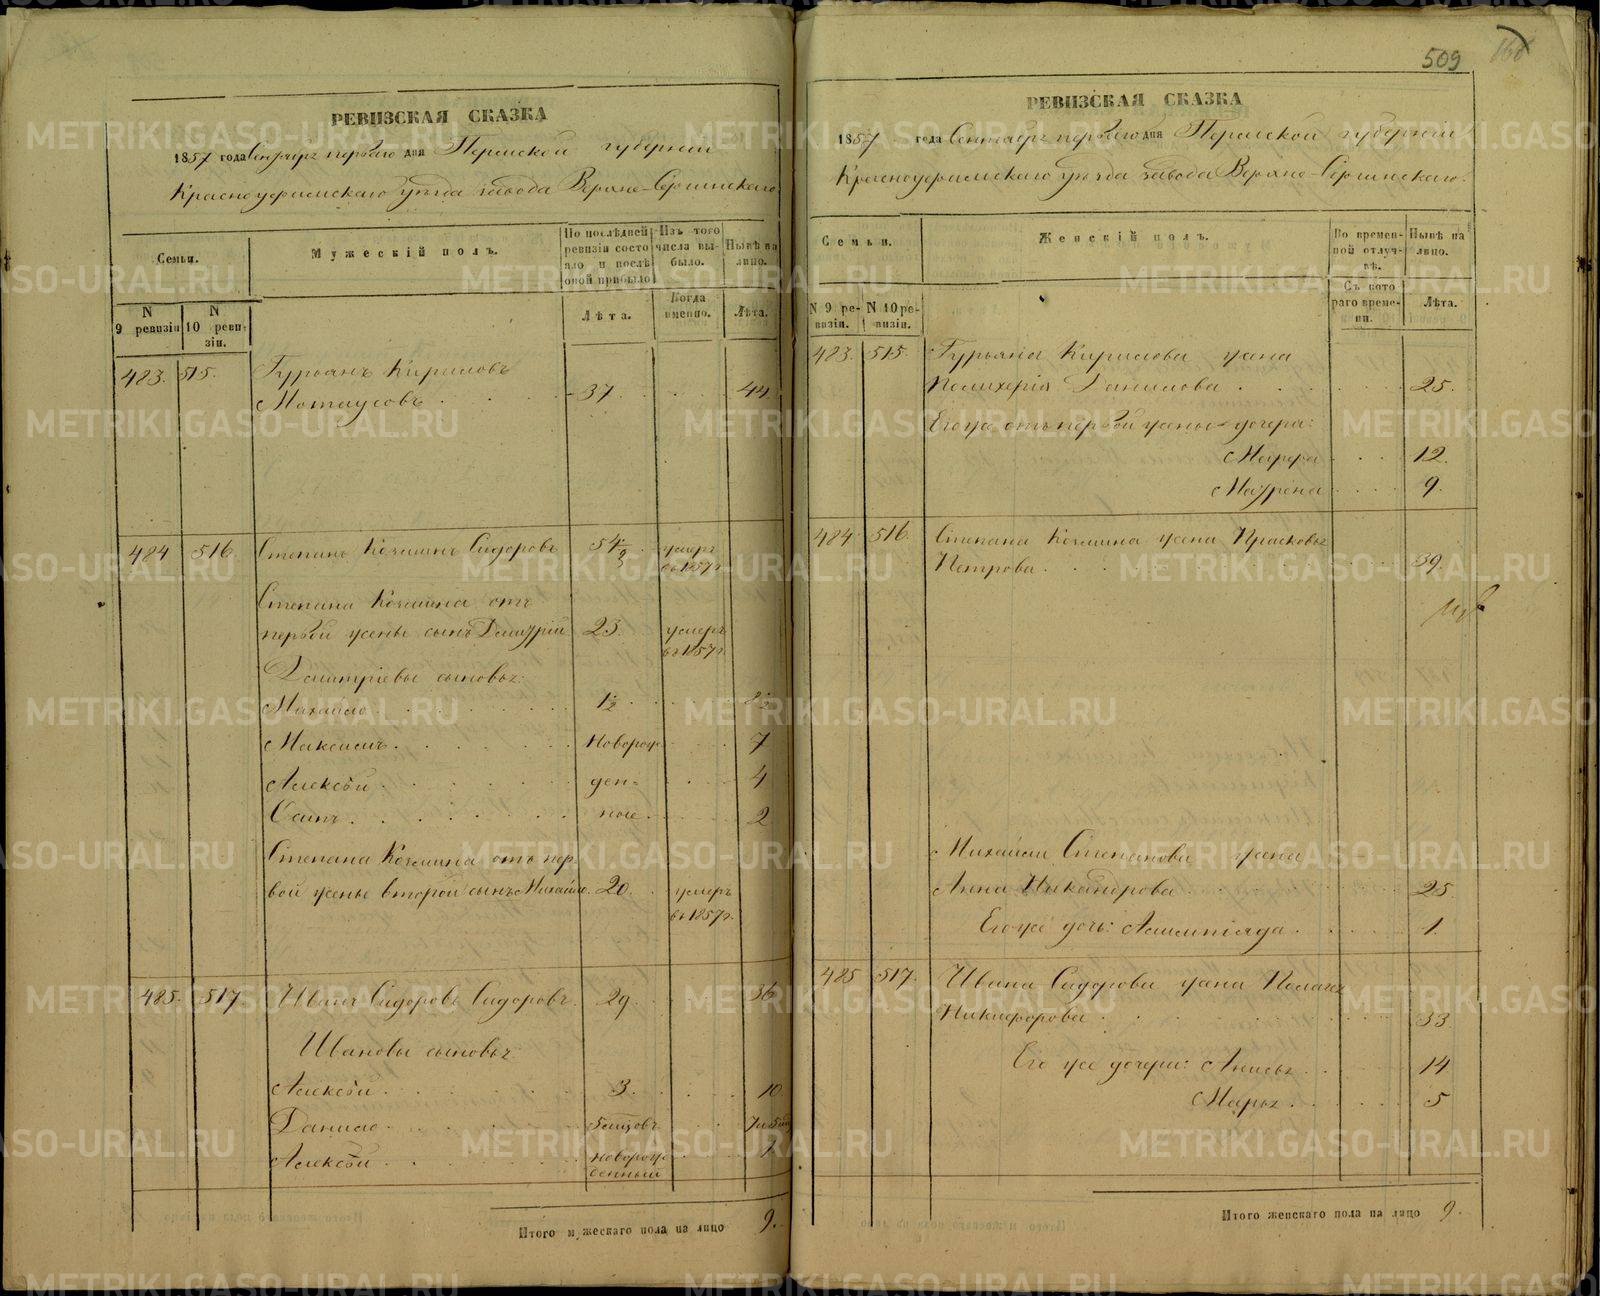 509
РЕВИЗСКАЯ СКАЗКА
1857 года Сентября первого дня Пермской губернии
Красноуфимскаго уѣзда завода Верхне-Сергинскаго.
Семьи.
Мужескій полъ.
По послѣдней ревизіи состояло и послѣ оной прибыло
Изъ того числа выбыло.
Нынѣ на лицо.
N 9 ревизіи
N 10 ревизіи.
Лѣта.
Когда именно.
Лѣта.
483. 515. Гурьянъ Кириловъ
37. 44
484 516. Степанъ Козминъ Сидоровъ 54½ умеръ
въ 1857г.
Степана Козмина отъ
первой жены сынъ Дмитрій 23. умеръ
въ 1857г.
Дмитріевы сыновья:
Михайло 1½ 8½
Максимъ Новорож 7
Алексѣй ден- 4
Осипъ ные 2
Степана Козмина отъ пер
вой жены второй сынъ Михайло 20. умеръ
въ 1857г.
485. 517. Иванъ Сидоровъ Сидоровъ 29 36
Ивановы сыновья:
Алексѣй 3. 10.
Данило 5 мѣсяцовъ
Алексѣй новорож 1
денный
Итого мужескаго пола на лицо 9.
РЕВИЗСКАЯ СКАЗКА
1857 года Сентября первого дня Пермской губерніи
Красноуфимскаго уѣзда завода Верхне-Сергинскаго.
Семьи.
Женскій полъ.
Во временной отлучкѣ.
Нынѣ на лицо.
N 9 ревизіи.
N 10 ревизіи.
Съ котораго времени.
Лѣта.
483. 515. Гурьяна Кирилова жена
Полихерія Данилова 25.
Его же отъ первой жены дочери:
Марфа 12.
Маврена 9.
484 516. Степана Козмина жена Прасковья
Петрова 39.
Михайла Степанова жена
Анна Никандрова 25
Его же дочь: Алимпіяда 1.
485 517. Ивана Сидорова жена Пелагея
Никифорова 33
Его же дочери: Анисья 14
Марья 5
Итого женскаго пола на лицо 9.
METRIKI.GASO-URAL.RU